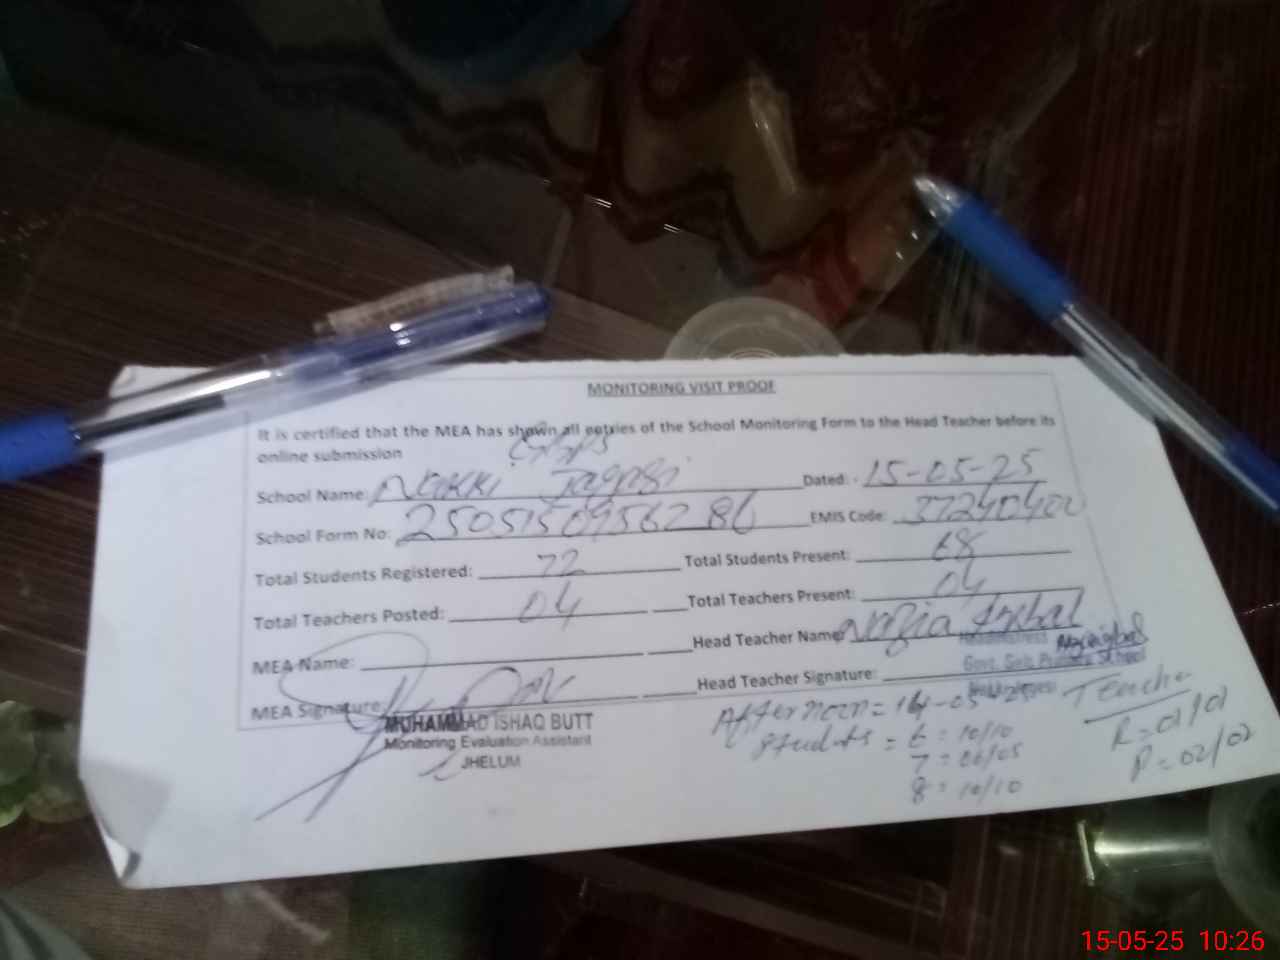 MONITORING VISIT PROOF
It is certified that the MEA has shown all entries of the School Monitoring Form to the Head Teacher before its
online submission
GGPS
School Name: Nakki Dated: - 15-05-25
School Form No: 25051509562 86 EMIS Code: 37240400
Total Students Registered: 72 Total Students Present: 68
Total Teachers Posted: 04 Total Teachers Present: 04
MEA Name: Head Teacher Name: Nazia Iqbal
Headmistress
Govt. Girls Primary School
MEA Signature: Head Teacher Signature:
MUHAMMAD ISHAQ BUTT
Monitoring Evaluation Assistant
JHELUM
Afternoon = 14-05-25
Students = 6 = 10/10
7 = 06/05
8 = 10/10
Teacher
R = 02/02
P = 02/02
15-05-25 10:26